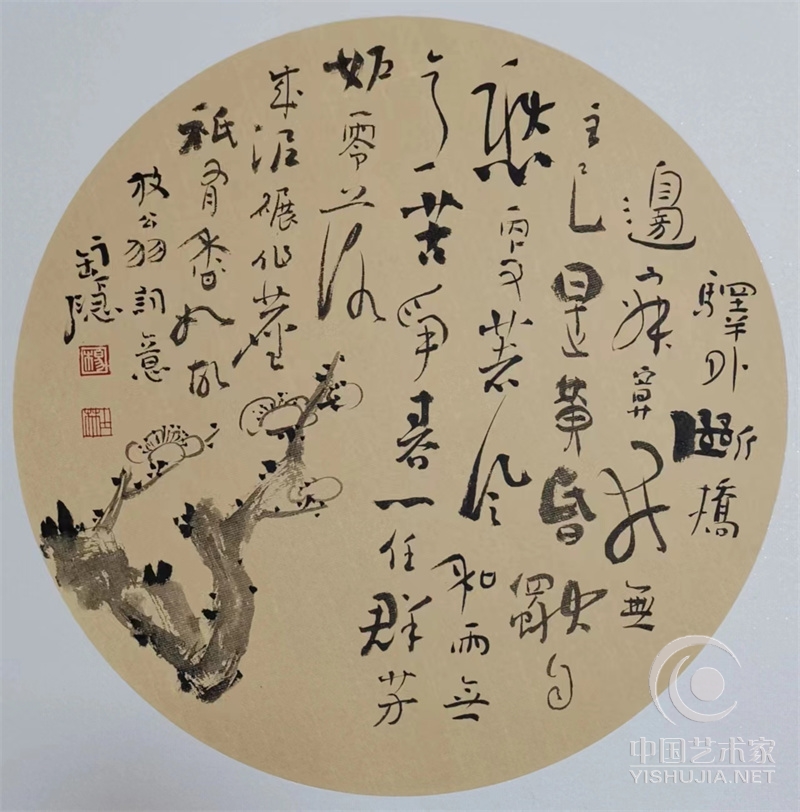 驛外斷橋
邊寂寞開無
主已是黄昏獨自
愁更著風和雨無
意苦爭春一任群芳
妒零落
成泥碾作塵
祇有香如故
放翁詞意
中国艺术家
YISHUJIA.NET